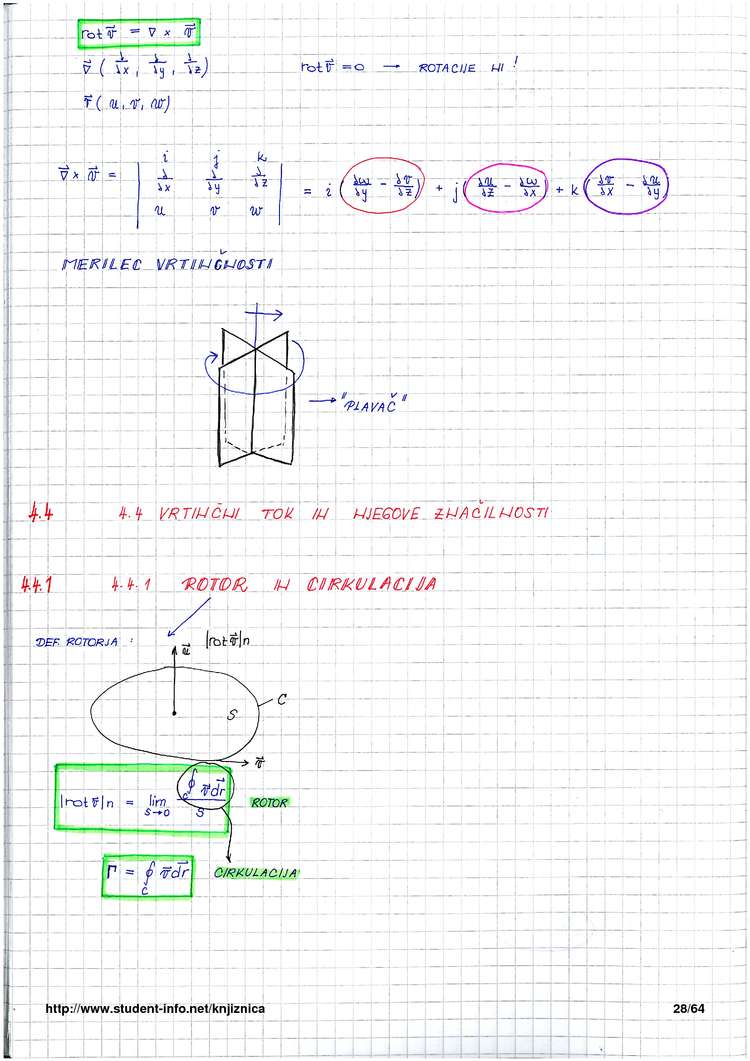 rot v⃗ = ∇ × v⃗
∇⃗ ( ∂/∂x , ∂/∂y , ∂/∂z ) rot v⃗ = 0 → ROTACIJE NI !
r⃗ ( u, v, w )
∇⃗ × v⃗ = | i j k ; ∂/∂x ∂/∂y ∂/∂z ; u v w | = i ( ∂w/∂y − ∂v/∂z ) + j ( ∂u/∂z − ∂w/∂x ) + k ( ∂v/∂x − ∂u/∂y )
MERILEC VRTINČNOSTI
→ "PLAVAČ"
4.4 4.4 VRTINČNI TOK IN NJEGOVE ZNAČILNOSTI
4.4.1 4.4.1 ROTOR IN CIRKULACIJA
DEF. ROTORJA : u⃗ |rot v⃗|n
C
S
v⃗
|rot v⃗|n = lim S→0 ∮c v⃗ dr⃗ / S ROTOR
Γ = ∮c v⃗ dr⃗ CIRKULACIJA
http://www.student-info.net/knjiznica 28/64